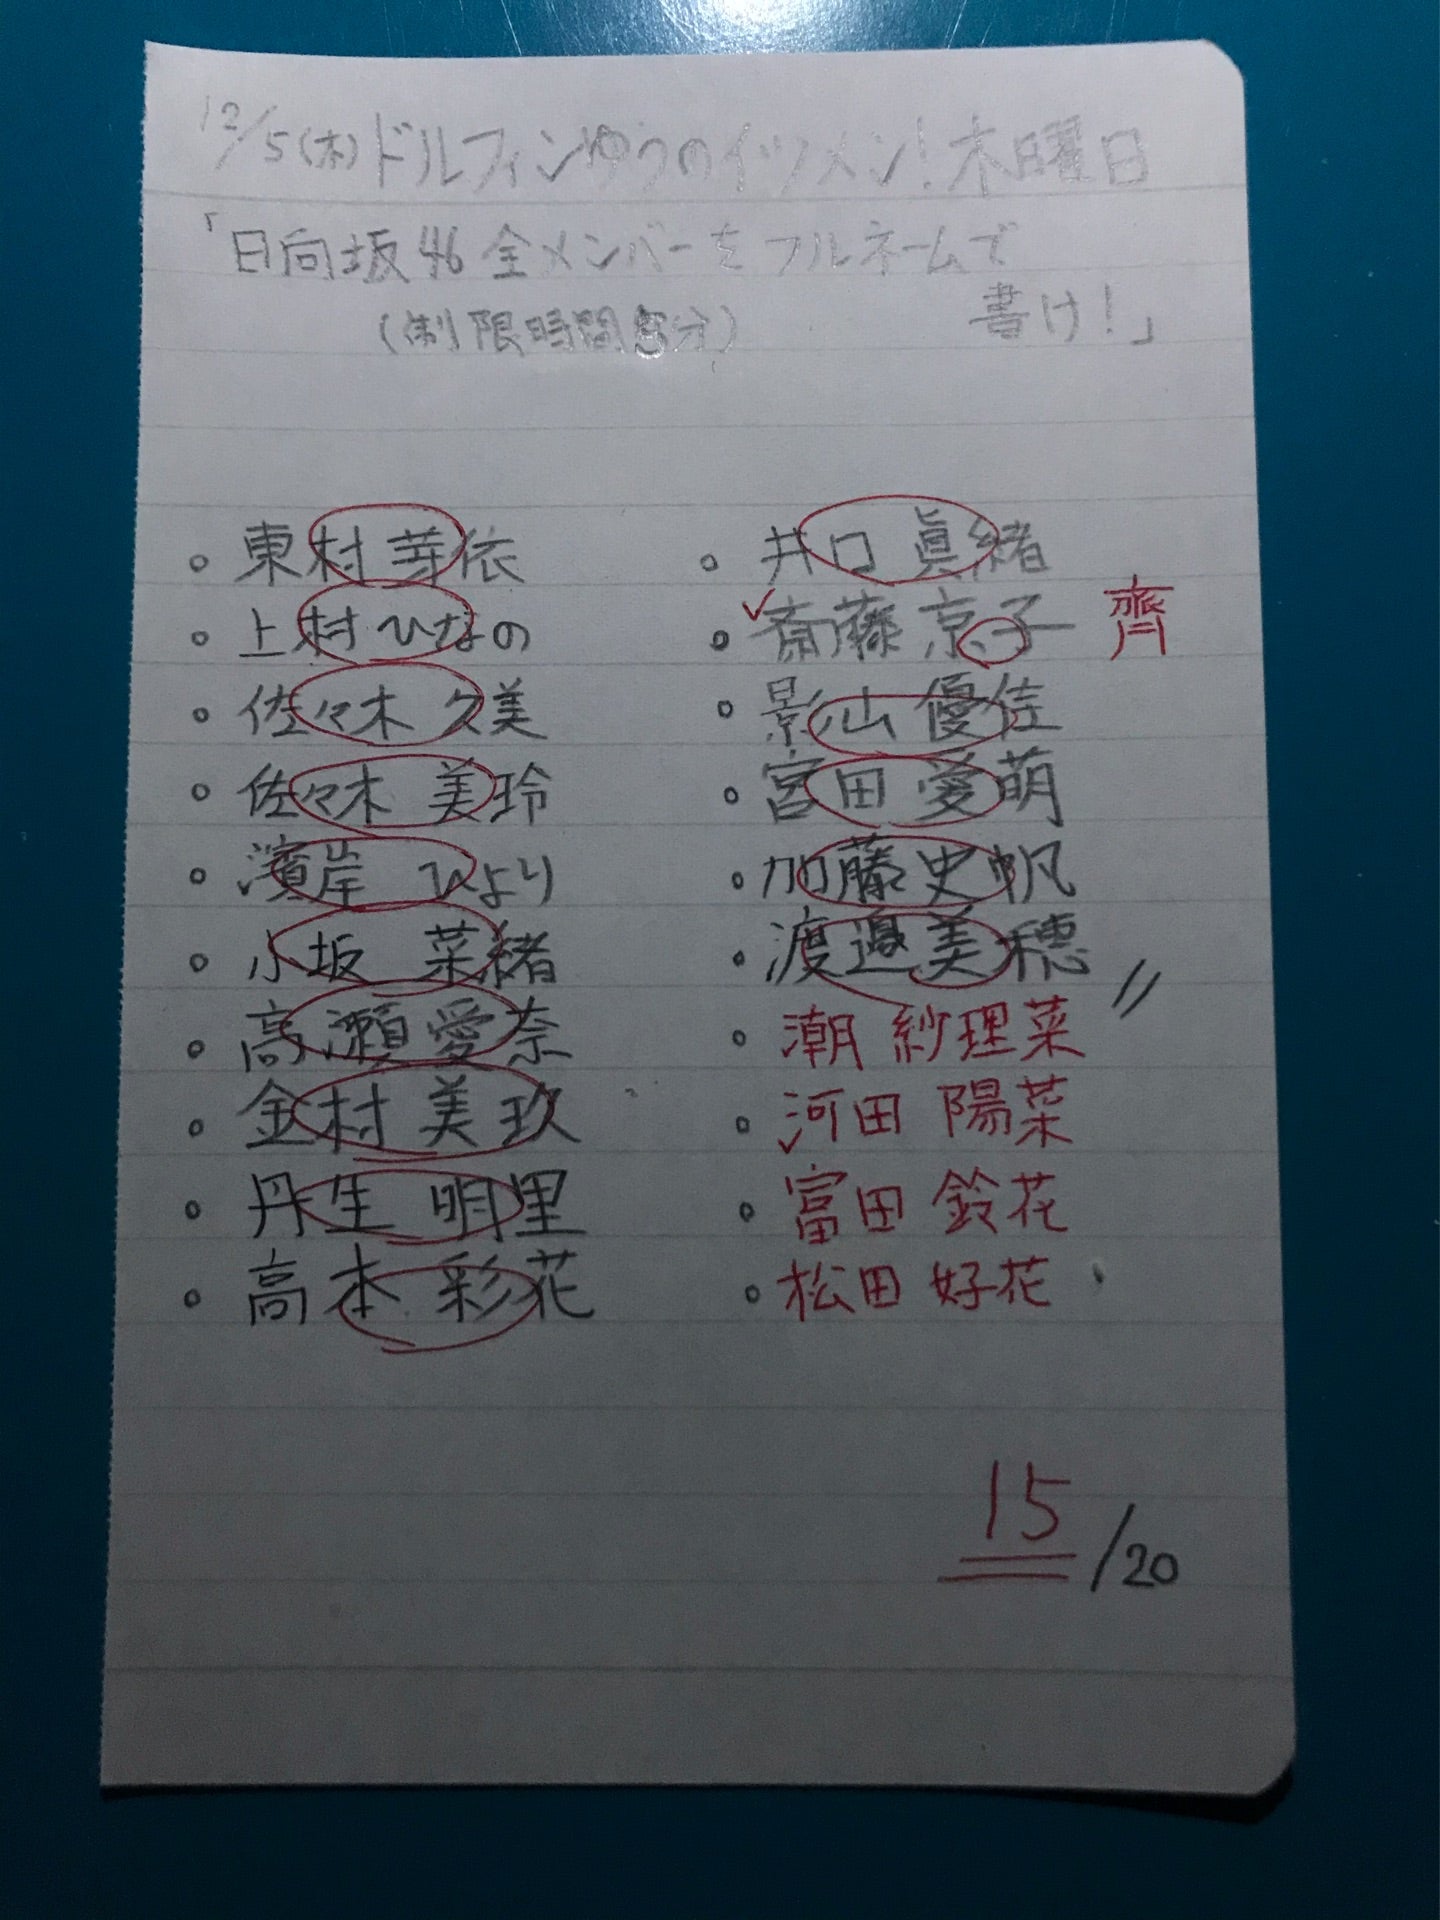 12/5(木)ドルフィンゆうのイツメン!木曜日
「日向坂46全メンバーをフルネームで
書け!」
(制限時間5分)
東村芽依
上村ひなの
佐々木久美
佐々木美玲
濱岸ひより
小坂菜緒
高瀬愛奈
金村美玖
丹生明里
高本彩花
井口眞緒
斎藤京子 齊
影山優佳
宮田愛萌
加藤史帆
渡邉美穂
潮紗理菜
河田陽菜
富田鈴花
松田好花
15/20